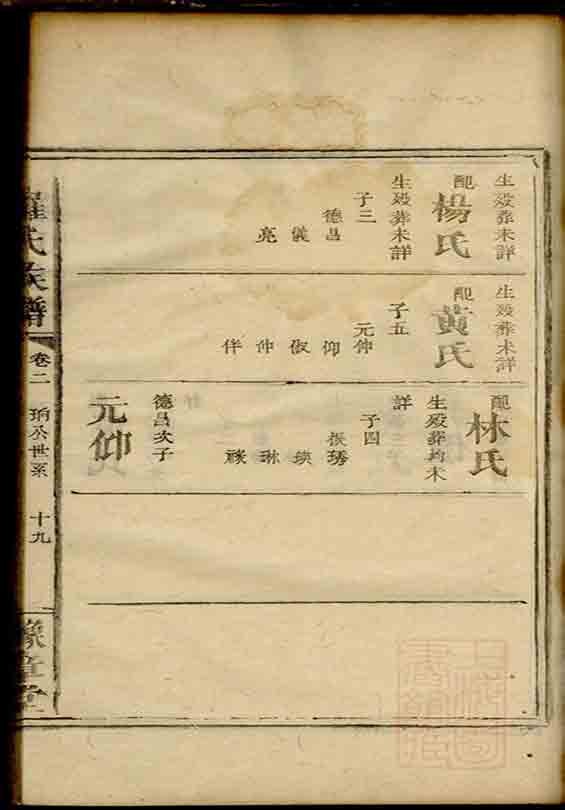 生殁葬未詳
配楊氏
生殁葬未詳
子三
德昌
儀
亮
生殁葬未詳
配黄氏
子五
元仲
仰
俶
仲
伴
配林氏
生殁葬均未
詳
子四
振琇
瑛
琳
德昌次子
元仰
羅氏族譜
卷二
世系
十九
豫章堂